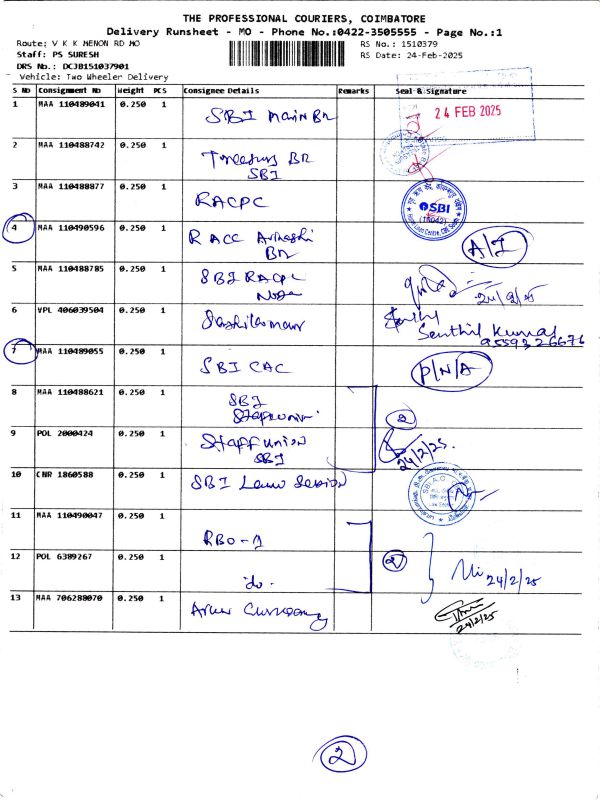 THE PROFESSIONAL COURIERS, COIMBATORE
Delivery Runsheet - MO - Phone No.:0422-3505555 - Page No.:1
Route: V K K MENON RD MO RS No.: 1510379
Staff: PS SURESH RS Date: 24-Feb-2025
DRS No.: DCJB151037901
Vehicle: Two Wheeler Delivery
S No Consignment No Weight PCS Consignee Details Remarks Seal & Signature
1 MAA 110489041 0.250 1 SBI Main Br
24 FEB 2025
2 MAA 110488742 0.250 1 Br
SBI
3 MAA 110488877 0.250 1 RACPC
SBI
(16042)
4 MAA 110490596 0.250 1 RACC Avinashi
Br
A/I
5 MAA 110488785 0.250 1 SBI RACPC
24/2/25
6 VPL 406039504 0.250 1 Sasikumar
Senthil Kumar
9559326676
7 MAA 110489055 0.250 1 SBI CAC P/N/A
8 MAA 110488621 0.250 1 SBI
2
9 POL 2000424 0.250 1 Staff union
SBI
24/2/25.
10 CNR 1860588 0.250 1 SBI
11 MAA 110490047 0.250 1 RBO-1
2
12 POL 6389267 0.250 1 do.
24/2/25
13 MAA 706288070 0.250 1 Arun
24/2/25
2